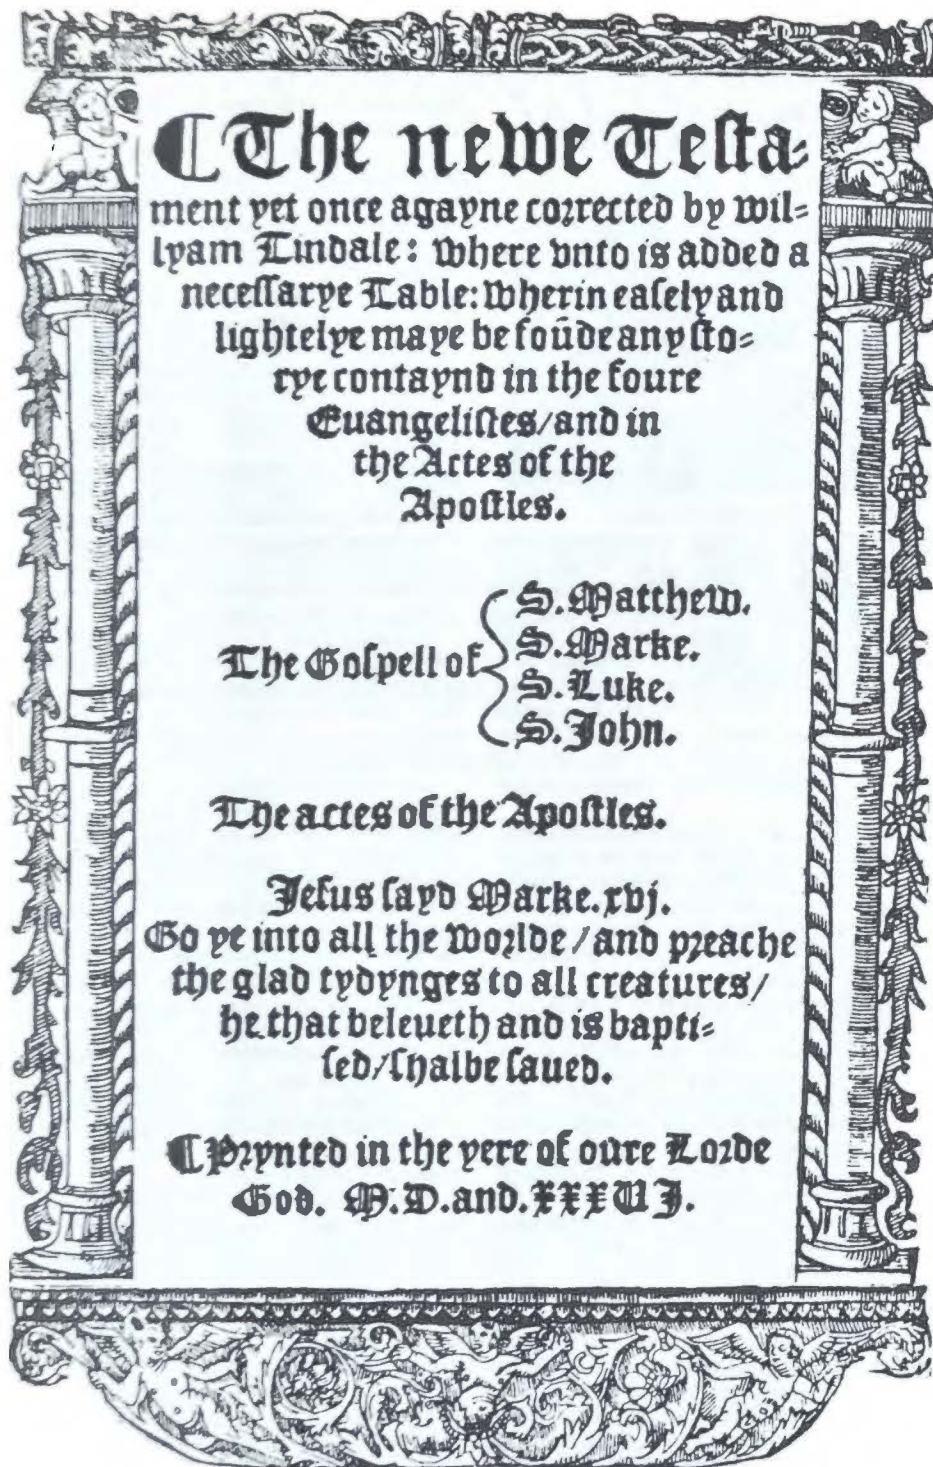 ¶ The newe Testa⸗
ment yet once agayne corrected by Wil⸗
lyam Tindale: Where vnto is added a
neceſſarye Table: Wherin eaſely and
lightelye maye be foūde any ſto⸗
rye contaynd in the foure
Euangeliſtes/and in
the Actes of the
Apoſtles.
The Goſpell of
S.Matthew.
S.Marke.
S.Luke.
S.John.
The actes of the Apoſtles.
Jeſus ſayd Marke.xvj.
Go ye into all the worlde/and preache
the glad tydynges to all creatures/
he that beleueth and is bapti⸗
ſed/ſhalbe ſaued.
¶ Prynted in the yere of oure Lorde
God. M.D.and.XXXVJ.